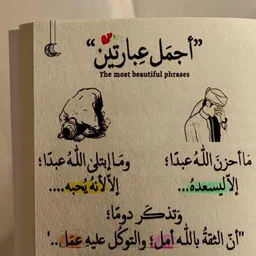 "أجمَل عِبارتين"
The most beautiful phrases
مَا أحزنَ اللّٰهُ عبدًا؛
إلاّ ليسعدهُ...
ومَا إبتلىٰ اللّٰهُ عبدًا؛
إلاّ لأنهُ يُحبه....
وَتذكَر دومًا؛
"أنّ الثقةُ باللّٰه أمل؛ والتوكُل عليهِ عمَل..'